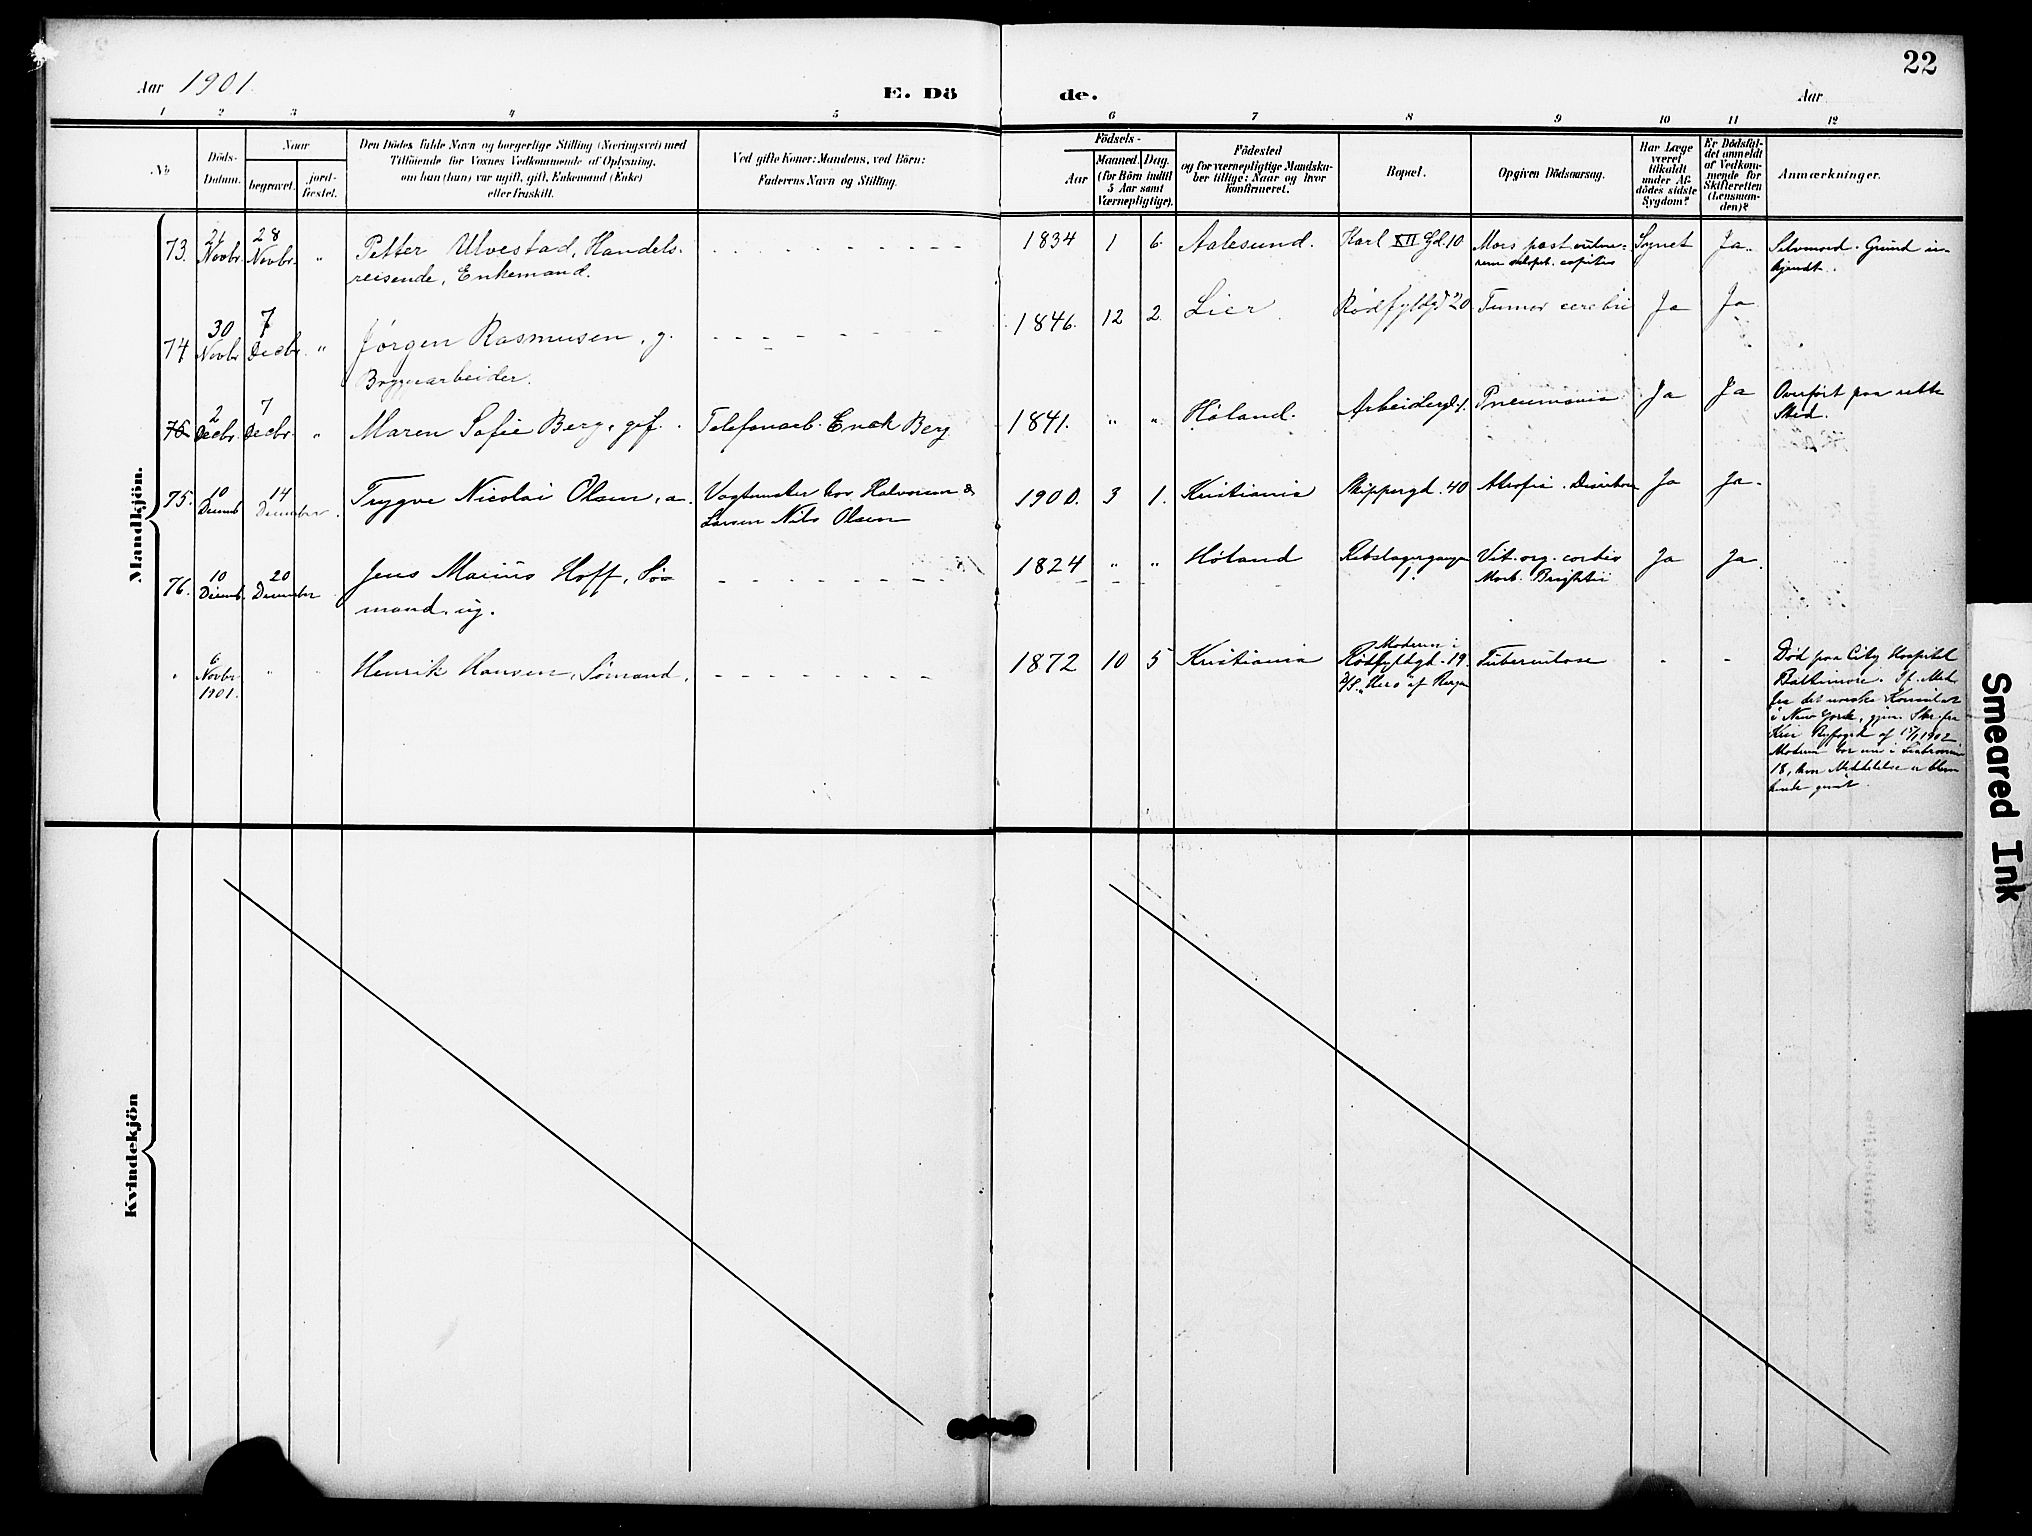 22
Aar 1901.
E. Dö de.
Aar
1 2 3 4 5 6 7 8 9 10 11 12
No
Döds-
Datum.
Naar
begravet.
jord-
fæstet.
Den Dödes fulde Navn og borgerlige Stilling (Næringsvei) med
Tilföiende for Voxnes Vedkommende af Oplysning,
om han (hun) var ugift, gift, Enkemand (Enke)
eller fraskilt.
Ved gifte Koner: Mandens, ved Börn:
Faderens Navn og Stilling.
Födsels-
Aar
Maaned. Dag.
(for Börn indtil
5 Aar samt
Værnepligtige).
Födested
og for værnepligtige Mandska-
ber tillige: Naar og hvor
konfirmeret.
Bopæl.
Opgiven Dödsaarsag.
Har Læge
været
tilkaldt
under Af-
dödes sidste
Sygdom?
Er Dödsfal-
det anmeldt
af Vedkom-
mende for
Skifteretten
(Lensman-
den)?
Anmærkninger.
Mandkjön.
73. Novbr. 28 Novbr. " Petter Ulvestad, Handels-
reisende, Enkemand.
1834 1 6 Aalesund. Karl XII Gd. 10 Mors post
Ja. Selvmord. Grund u-
kjendt.
74 30 Novbr 7 Decbr. " Jørgen Rasmusen, g.
Bryggearbeider.
1846. 12 2. Lier Rødfyldgd 20 Tumor cerebri Ja Ja
76 2 Decbr. 7 Decbr. " Maren Sofie Berg, gif. Telefonarb. Enok Berg
1841. " " Høland. Arbeidergd. 1. Pneumonia Ja Ja Overført paa rette
Sted.
75. 10 Decemb 14 December. Trygve Nicolai Olsen, a. Vagtmester hos Halvorsen &
Larsen Nils Olsen
1900. 3 1. Kristiania Skippergd. 40 Atrofi. Ja Ja.
76. 10 Decemb. 20 December Jens Marius Hoff, Sø-
mand, ug.
1824 " " Høland Rebslagergangen
1. Vit. org. cordis
Morb. Brightii Ja Ja.
" 6 Novbr
1901. " Henrik Hansen, Sømand,
1872 10 5 Kristiania Moderen i
Rødfyldgd. 19
D/S. "Hero" af Bergen Tuberculose - -
Død paa City Hospital
Baltimore. If. Med.
fra det norske Konsulat
i New York, gjen. Skr. fra
Kria af 1902
Moderen bor nu i
18, hvor Meddelelse er bleven
hende
Kvindekjön
Smeared Ink